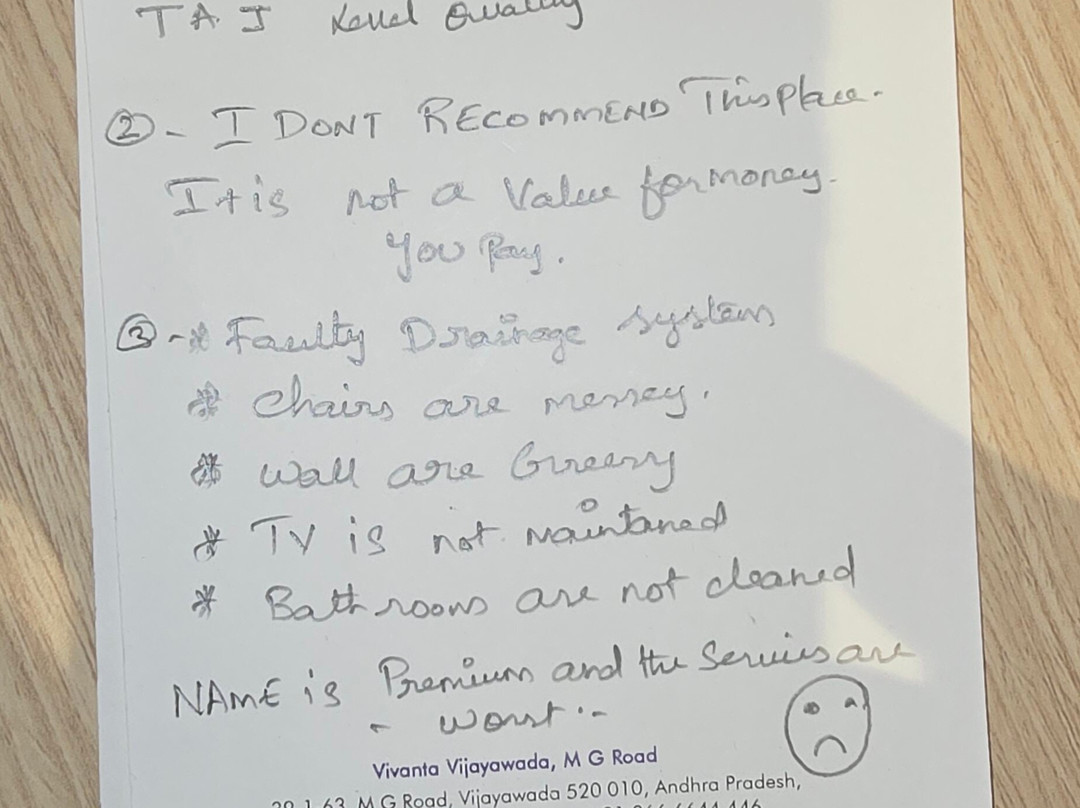 TAJ Level Quality
② - I DONT RECOMMEND This place.
It is not a Value for money.
you Pay.
③ - * Faulty Drainage system
* Chairs are messey.
* Wall are Greesy
* TV is not maintaned
* Bathrooms are not cleaned
NAME is Premium and the Services are
- worst .-
Vivanta Vijayawada, M G Road
M G Road, Vijayawada 520 010, Andhra Pradesh,